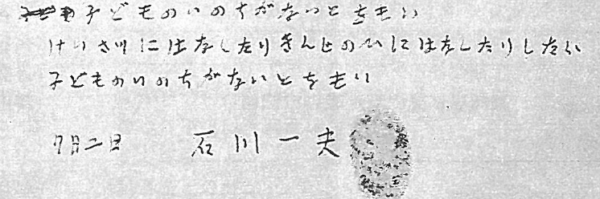 子どものいのちがないとをもい
けいさツに は左したりきんじのひに は左したりしたら
子どものいのちがないとをもい
7月二日 石川一夫